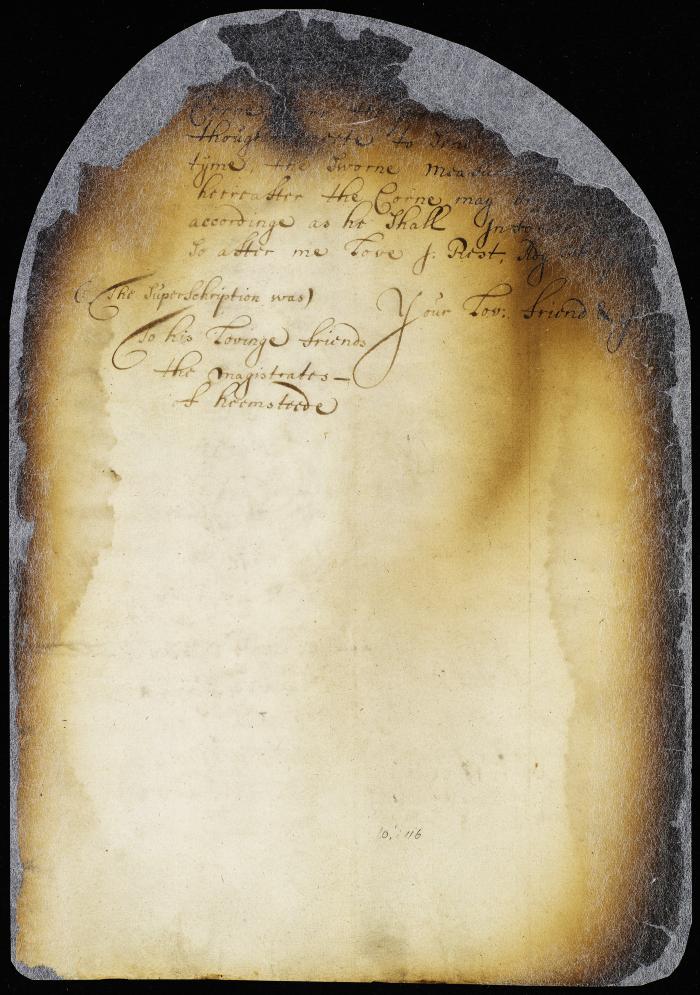 Corne
thought to
tyme, the Sworne Measu
hereafter the Corne may b
accordinge as he Shall Info
So after me Love I: Rest,
(The SuperSchription was) Your Lov: friend
To his Lovinge friends
the magistrates—
of heemsteede
10:116